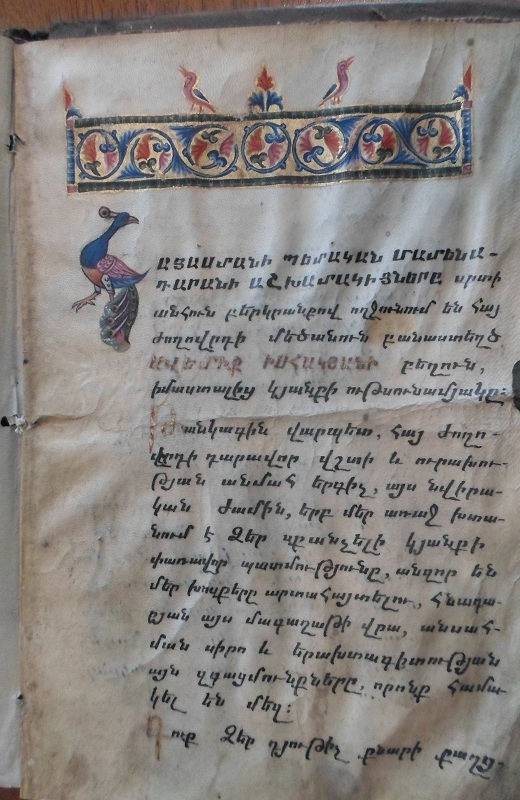 ԱՅԱՍՏԱՆԻ ՊԵՏԱԿԱՆ ՄԱՏԵՆԱ-
ԴԱՐԱՆԻ ԱՇԽԱՏԱԿԻՑՆԵՐԸ սրտի
անհուն բերկրանքով ողջունում են հայ
ժողովրդի մեծանուն բանաստեղծ
ԱՎԵՏԻՔ ԻՍԱՀԱԿՅԱՆԻ բեղուն,
իմաստալից կյանքի ութսունամյակը:
Թանկագին վարպետ, հայ ժողո-
վրդի դարավոր վշտի և ուրախու-
թյան անմահ երգիչ, այս նվիրա-
կան ժամին, երբ մեր առաջ խտա-
նում է Ձեր սքանչելի կյանքի
փառավոր պատմությունը, անզոր են
մեր խոսքերը արտահայտելու, հնադա-
րյան այս մագաղաթի վրա, անսահ-
ման սիրո և երախտագիտության
այն զգացմունքները, որոնք համա-
կել են մեզ:
Դուք Ձեր դյութիչ քնարի քաղցր-